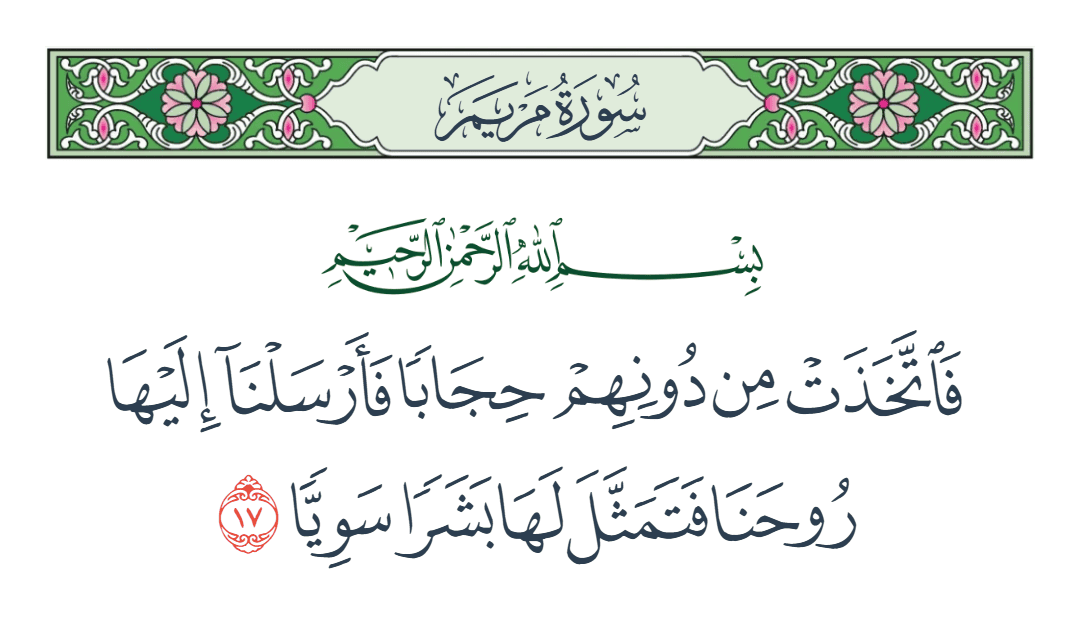 سُورَةُ مَرْيَمَ
بِسْمِ ٱللَّهِ ٱلرَّحْمَٰنِ ٱلرَّحِيمِ
فَٱتَّخَذَتْ مِن دُونِهِمْ حِجَابًا فَأَرْسَلْنَآ إِلَيْهَا
رُوحَنَا فَتَمَثَّلَ لَهَا بَشَرًا سَوِيًّا ١٧